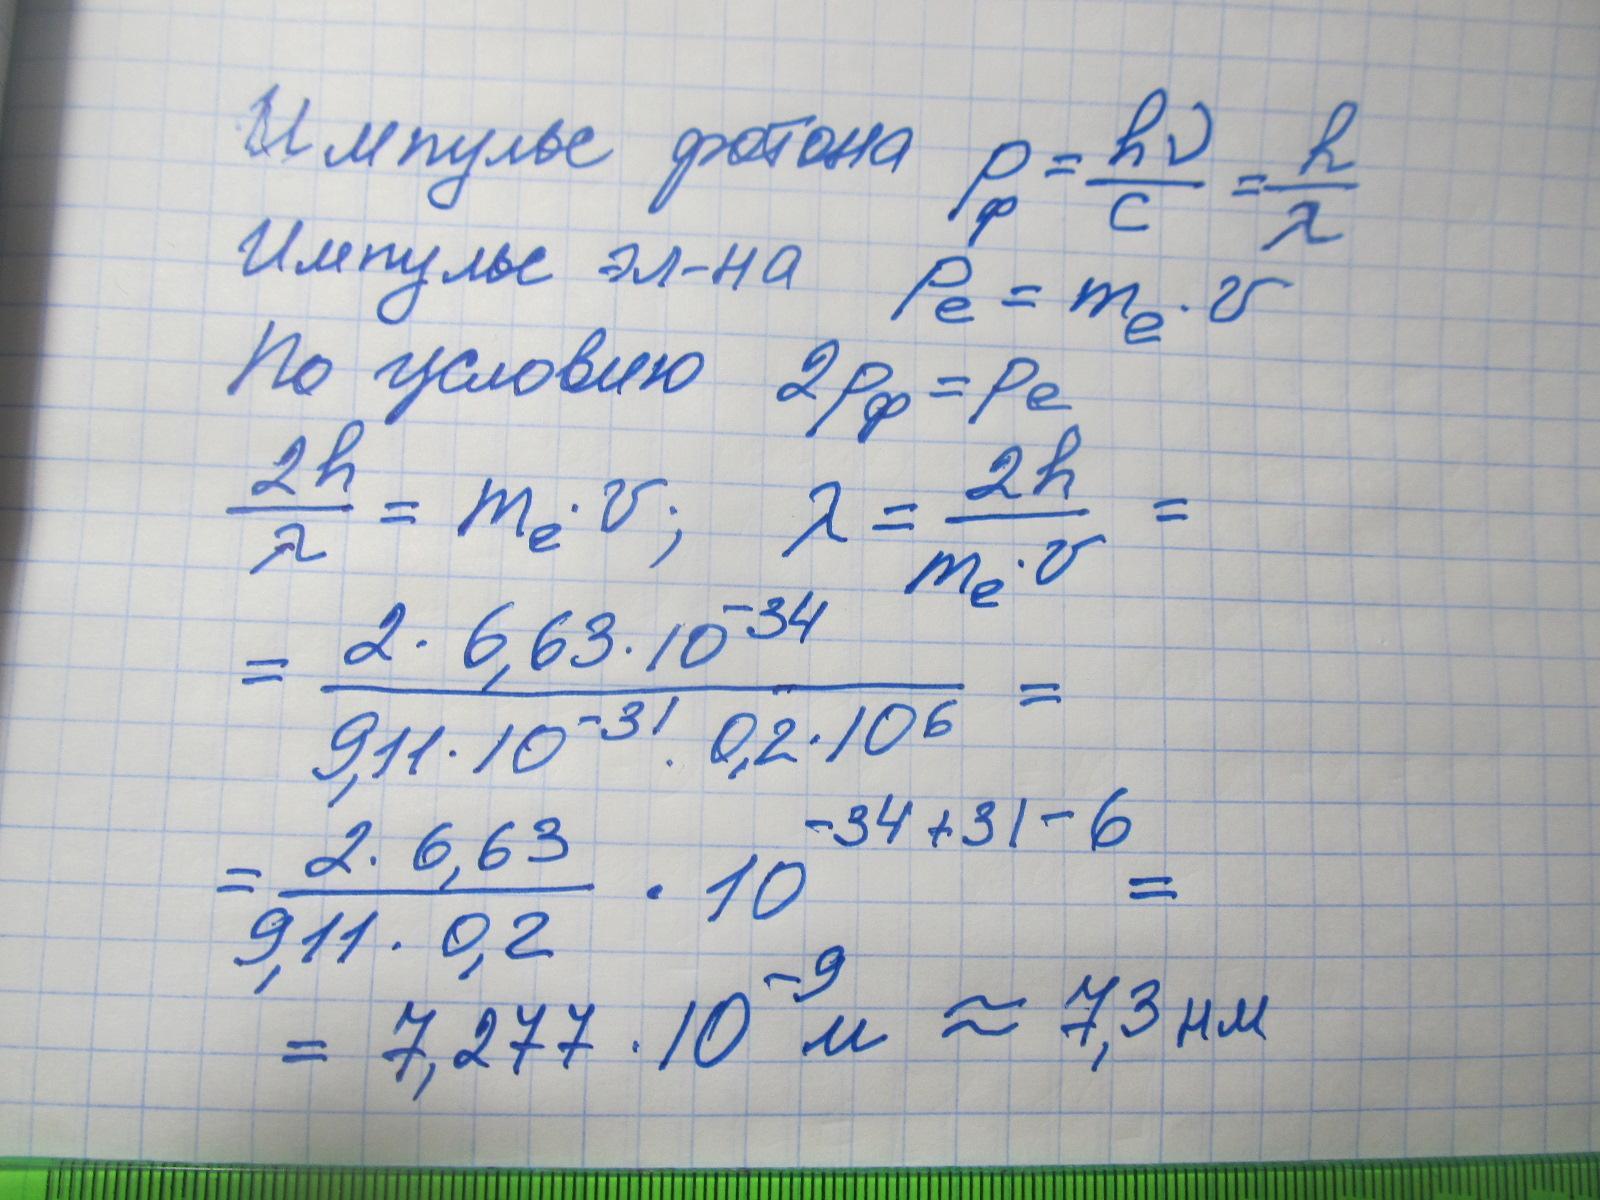 Импульс фотона p_ф = hν/c = h/λ
Импульс эл-на p_e = m_e · v
По условию 2p_ф = p_e
2h/λ = m_e · v; λ = 2h/(m_e · v) =
= 2 · 6,63 · 10^-34/(9,11 · 10^-31 · 0,2 · 10^6) =
= 2 · 6,63/(9,11 · 0,2) · 10^(-34+31-6) =
= 7,277 · 10^-9 м ≈ 7,3 нм